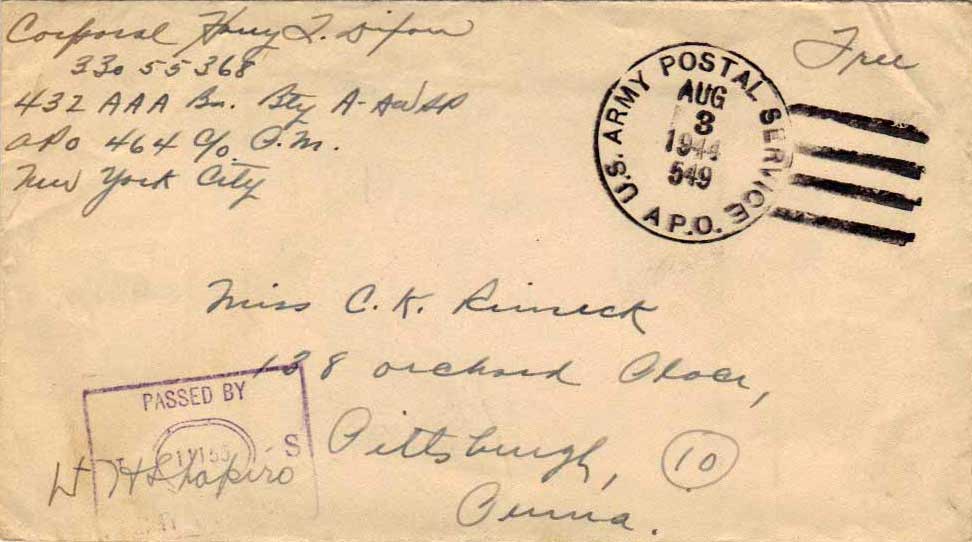 Corporal Harry T. Dixon
330 55368
432 AAA Bn. Bty A-AW SP
APO 464 c/o P.M.
New York City
Free
U.S. ARMY POSTAL SERVICE
AUG
3
1944
549
A.P.O.
Miss C. K. Rimeck
138 Orchard Place,
Pittsburgh, 10
Penna.
PASSED BY
S
Lt H Shapiro